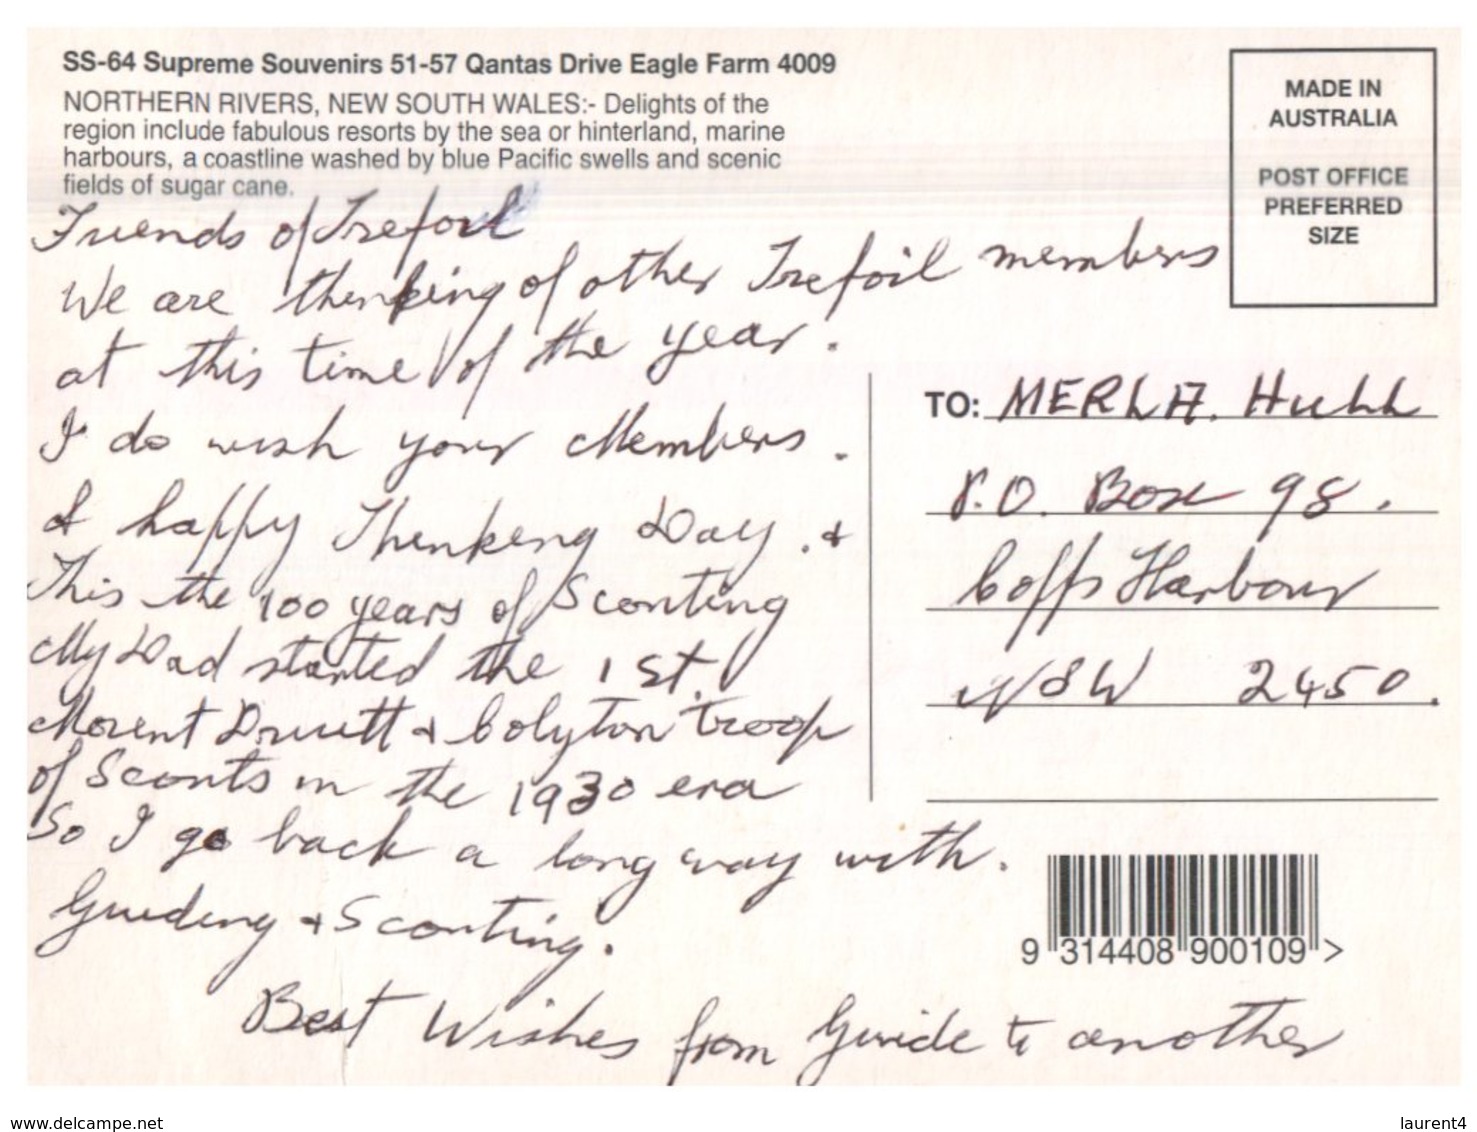 SS-64 Supreme Souvenirs 51-57 Qantas Drive Eagle Farm 4009
NORTHERN RIVERS, NEW SOUTH WALES:- Delights of the
region include fabulous resorts by the sea or hinterland, marine
harbours, a coastline washed by blue Pacific swells and scenic
fields of sugar cane.
MADE IN
AUSTRALIA
POST OFFICE
PREFERRED
SIZE
Friends of Trefoil
We are thinking of other Trefoil members
at this time of the year.
I do wish your Members.
A happy Thinking Day. &
This the 100 years of Scouting
My Dad started the 1st.
Mount Druitt & Colyton troop
of Scouts in the 1930 era
So I go back a long way with.
Guiding & Scouting.
Best Wishes from Guide to another
TO: MERLA. Hull
P.O. Box 98.
Coffs Harbour
NSW 2450.
9 314408 900109 >
www.delcampe.net
laurent4